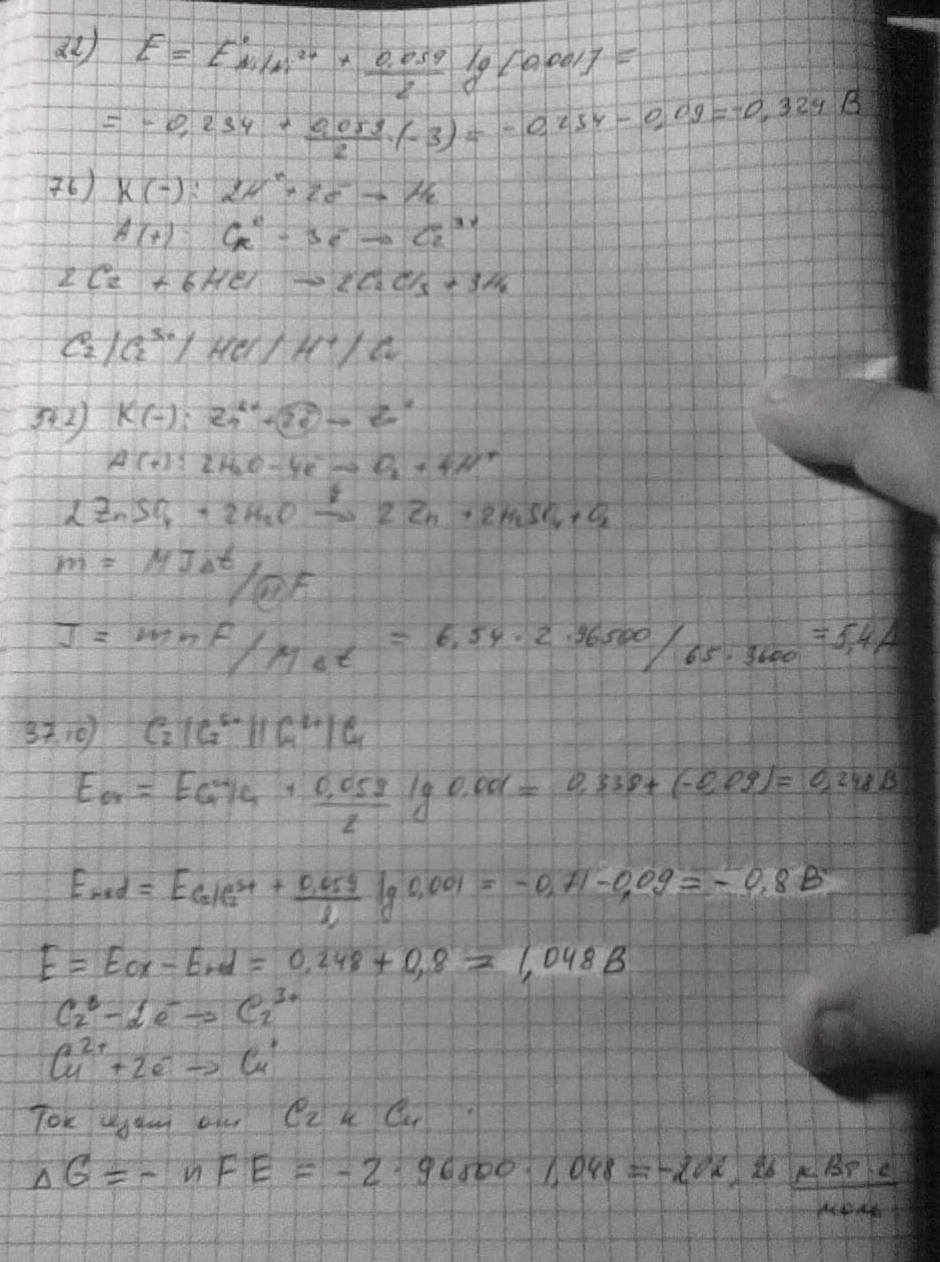 22) E = E°Ni/Ni²⁺ + 0,059/2 lg [0,001] =
= -0,234 + 0,059/2 · (-3) = -0,234 - 0,09 = -0,324 В
76) К(-): 2H⁺ + 2ē → H₂
A(+): Cr⁰ - 3ē → Cr³⁺
2Cr + 6HCl → 2CrCl₃ + 3H₂
Cr / Cr³⁺ / HCl / H⁺ / Cu
К(-): Zn²⁺ + 2ē → Zn⁰
A(+): 2H₂O - 4ē → O₂ + 4H⁺
2ZnSO₄ + 2H₂O → 2Zn + 2H₂SO₄ + O₂
m = MJΔt / nF
J = mnF / MΔt = 6,54 · 2 · 96500 / 65 · 3600 = 5,4 A
Cr | Cr³⁺ || Cu²⁺ | Cu
Eox = ECu²⁺/Cu + 0,059/2 lg 0,001 = 0,338 + (-0,09) = 0,248 В
Ered = ECr/Cr²⁺ + 0,059/2 lg 0,001 = -0,71 - 0,09 = -0,8 В
E = Eox - Ered = 0,248 + 0,8 = 1,048 В
Cr⁰ - 2ē → Cr³⁺
Cu²⁺ + 2ē → Cu⁰
Ток идет от Cr к Cu
ΔG = - nFE = -2 · 96500 · 1,048 = -202,26 кВт·с/моль